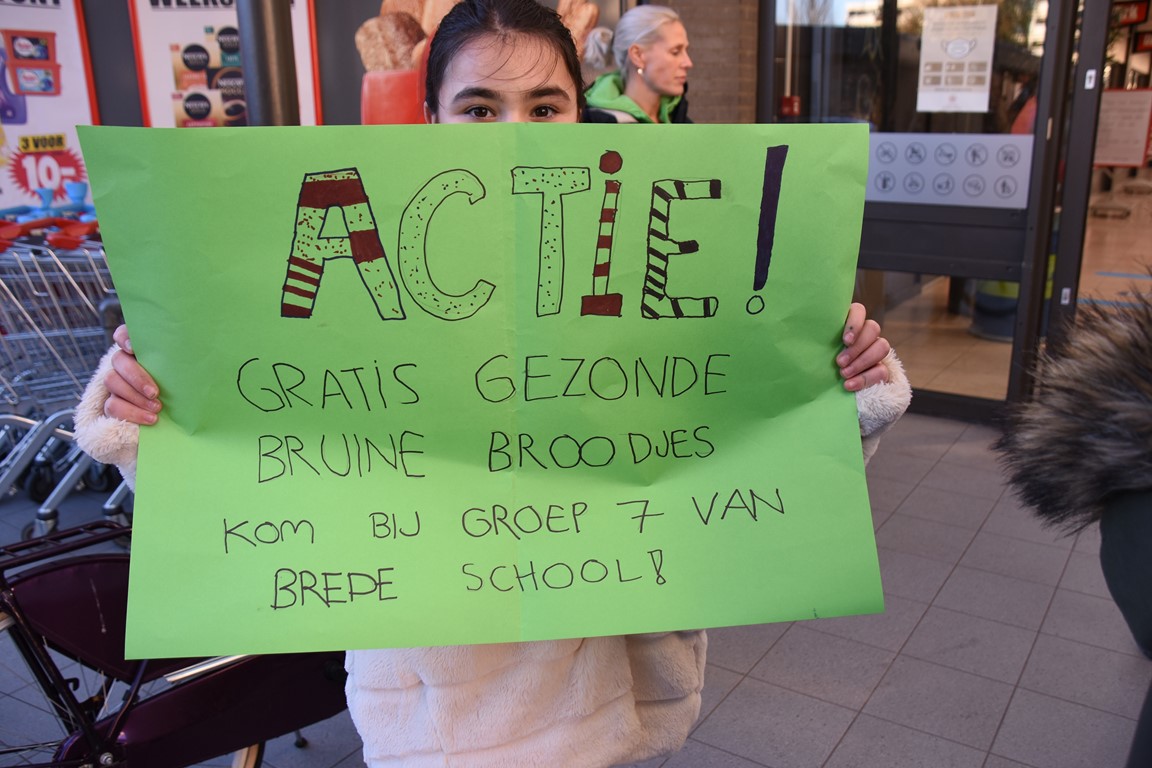 3 VOOR
10.-
ACTiE!
GRATiS GEZONDE
BRUINE BROODJES
KOM BIJ GROEP 7 VAN
BREDE SCHOOL!